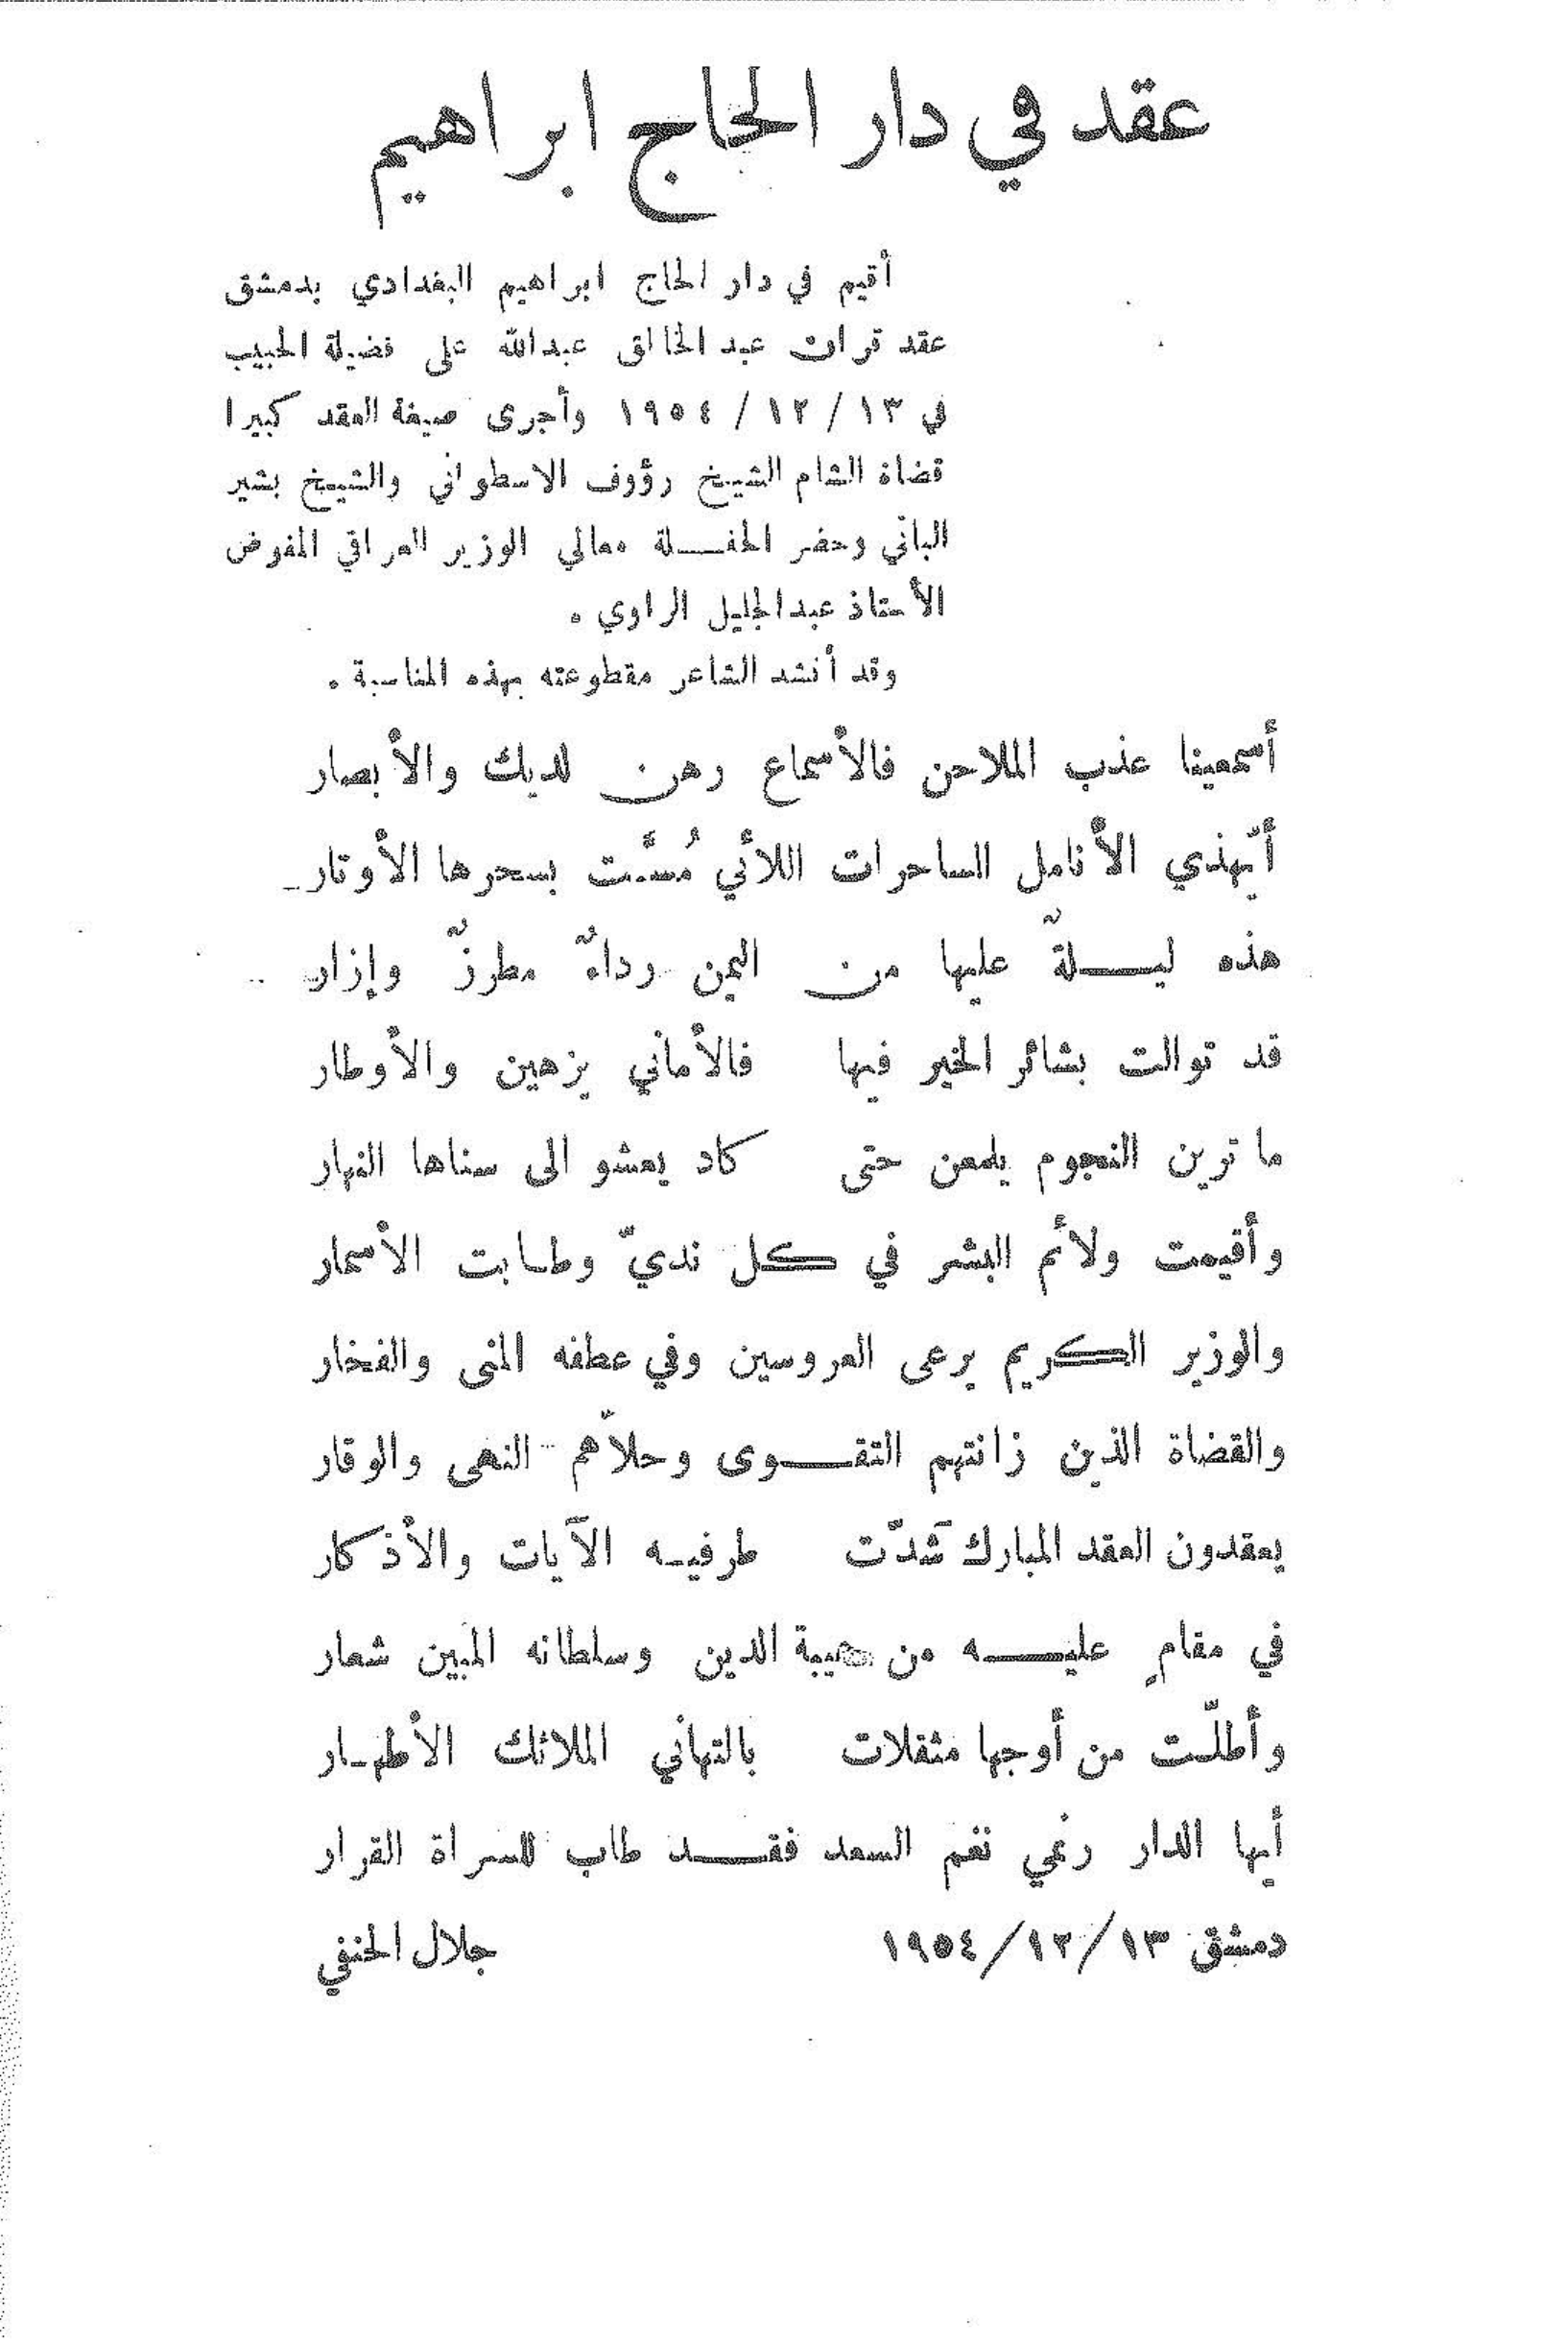 عقد في دار الحاج ابراهيم
أقيم في دار الحاج ابراهيم البغدادي بدمشق
عقد قران عبد الخالق عبدالله على فضيلة الحبيب
في ١٣ / ١٢ / ١٩٥٤ وأجرى صيغة العقد كبيرا
قضاة الشام الشيخ رؤوف الاسطواني والشيخ بشير
الباني وحضر الحفلة معالي الوزير العراقي المفوض
الأستاذ عبدالجليل الراوي .
وقد أنشد الشاعر مقطوعته بهذه المناسبة .
أسمعينا عذب الملاحن فالأسماع رهن لديك والأبصار
أيّهذي الأنامل الساحرات اللائي مُسَّت بسحرها الأوتار
هذه ليلةٌ عليها من اليمن رداءٌ مطرزٌ وإزار
قد توالت بشائر الخير فيها فالأماني يزهين والأوطار
ما ترين النجوم يلمعن حتى كاد يعشو الى سناها النهار
وأقيمت ولائم البشر في كل نديّ وطابت الأسمار
والوزير الكريم يرعى العروسين وفي عطفه المنى والفخار
والقضاة الذين زانتهم التقوى وحلاّهم النهى والوقار
يعقدون العقد المبارك شَدّت طرفيه الآيات والأذكار
في مقامٍ عليه من هيبة الدين وسلطانه المبين شعار
وأطلّت من أوجها مثقلات بالتهاني الملائك الأطهار
أيها الدار رنمي نغم السعد فقد طاب للسراة القرار
دمشق ١٣/١٢/١٩٥٤ جلال الحنفي